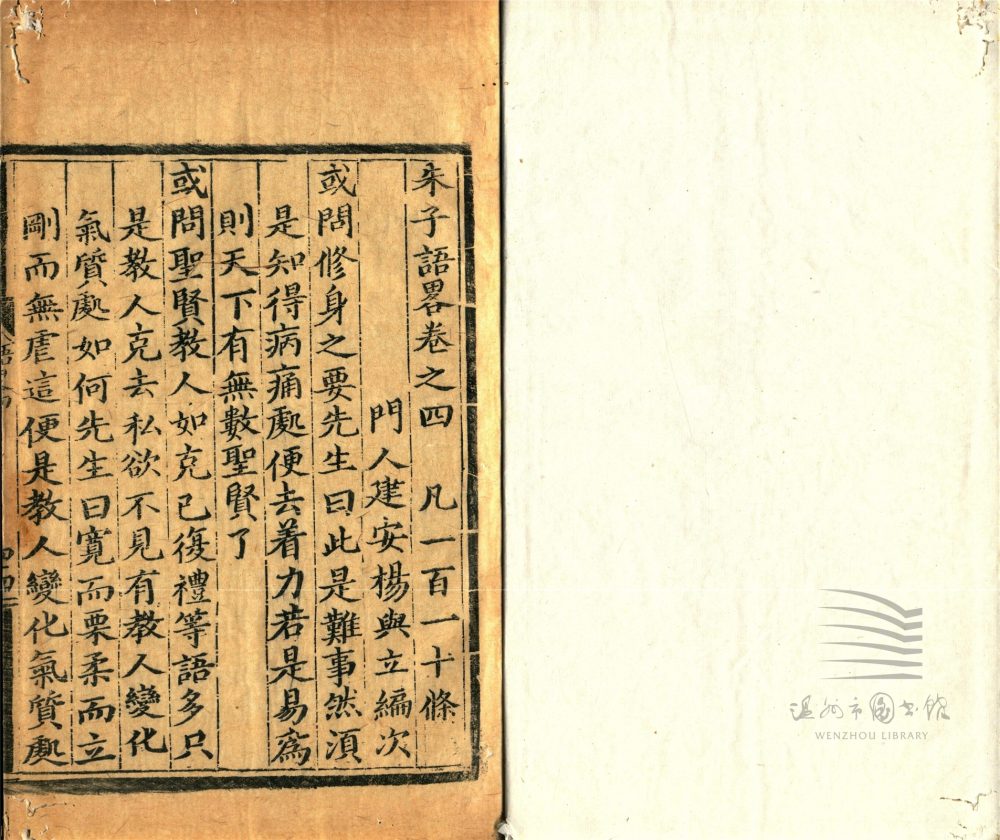 朱子語畧卷之四　凡一百一十條
門人建安楊與立編次
或問修身之要先生曰此是難事然湏
是知得病痛處便去着力若是易爲
則天下有無數聖賢了
或問聖賢教人如克己復禮等語多只
是教人克去私欲不見有教人變化
氣質處如何先生曰寬而栗柔而立
剛而無虐這便是教人變化氣質處
温州市图书馆
WENZHOU LIBRARY